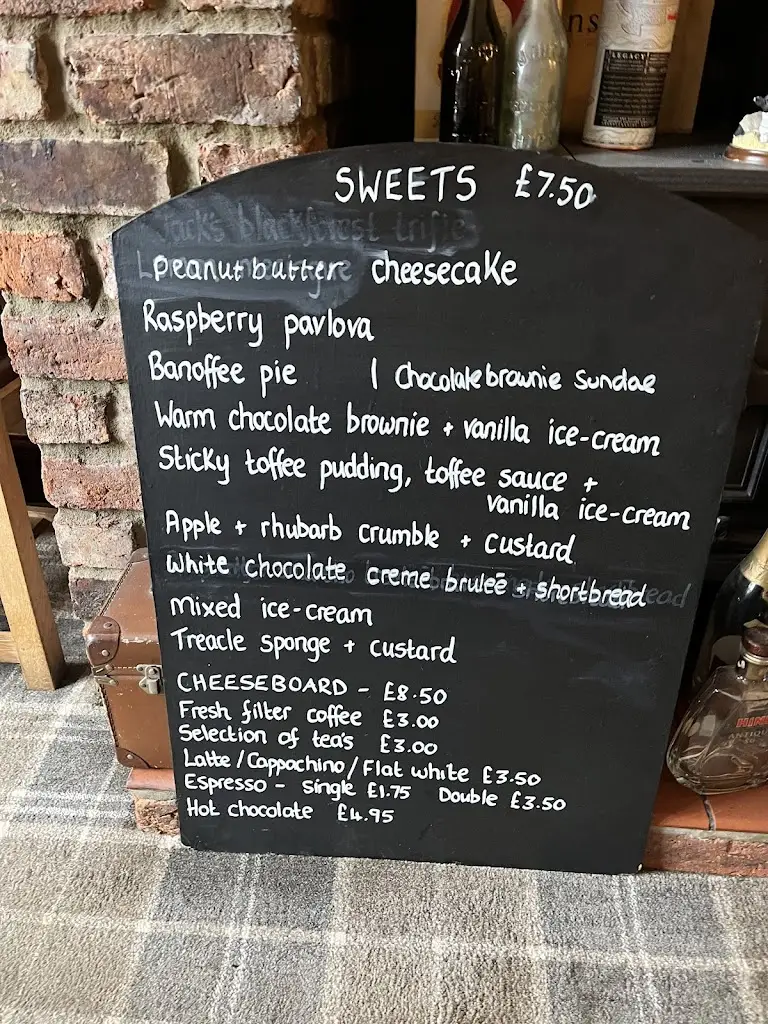 ns
LEGACY
SWEETS £7.50
Jack's blackforest trifle
peanut buttere cheesecake
Raspberry pavlova
Banoffee pie | Chocolate brownie Sundae
Warm chocolate brownie + vanilla ice-cream
Sticky toffee pudding, toffee sauce +
vanilla ice-cream
Apple + rhubarb crumble + custard
White chocolate creme bruleē + shortbread
Mixed ice-cream
Treacle sponge + custard
CHEESEBOARD - £8.50
Fresh filter coffee £3.00
Selection of tea's £3.00
Latte/Cappochino/Flat white £3.50
Espresso - Single £1.75 Double £3.50
Hot chocolate £4.95
HINE